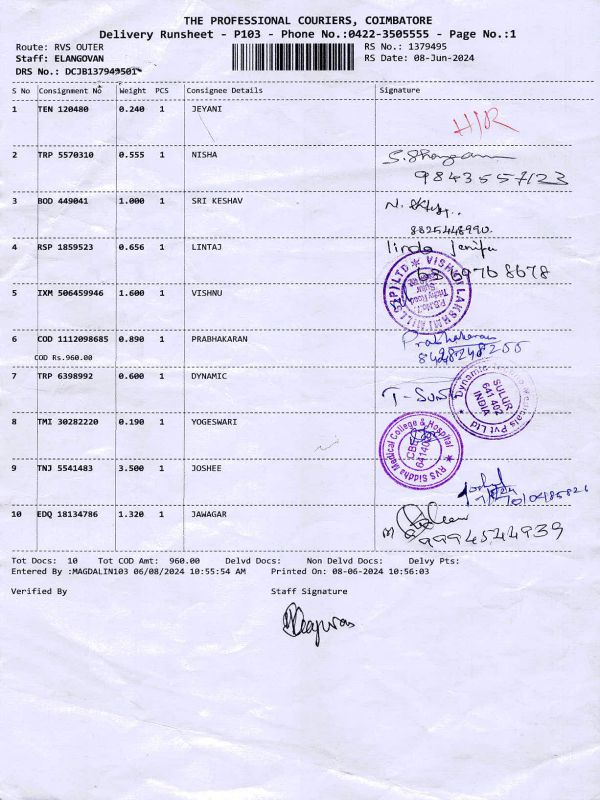 THE PROFESSIONAL COURIERS, COIMBATORE
Delivery Runsheet - P103 - Phone No.:0422-3505555 - Page No.:1
Route: RVS OUTER RS No.: 1379495
Staff: ELANGOVAN RS Date: 08-Jun-2024
DRS No.: DCJB137949501
S No Consignment No Weight PCS Consignee Details Signature
1 TEN 120480 0.240 1 JEYANI H/R
2 TRP 5570310 0.555 1 NISHA
9843557123
3 BOD 449041 1.000 1 SRI KESHAV
8825448990.
4 RSP 1859523 0.656 1 LINTAJ linda jenifer
5 IXM 506459946 1.600 1 VISHNU
6 COD 1112098685 0.890 1 PRABHAKARAN Prabhakaran
COD Rs.960.00
7 TRP 6398992 0.600 1 DYNAMIC
SULUR
641 402
INDIA
8 TMI 30282220 0.190 1 YOGESWARI
RVS Siddha Medical College & Hospital
9 TNJ 5541483 3.500 1 JOSHEE
10 EDQ 18134786 1.320 1 JAWAGAR
9994544939
Tot Docs: 10 Tot COD Amt: 960.00 Delvd Docs: Non Delvd Docs: Delvy Pts:
Entered By :MAGDALIN103 06/08/2024 10:55:54 AM Printed On: 08-06-2024 10:56:03
Verified By Staff Signature